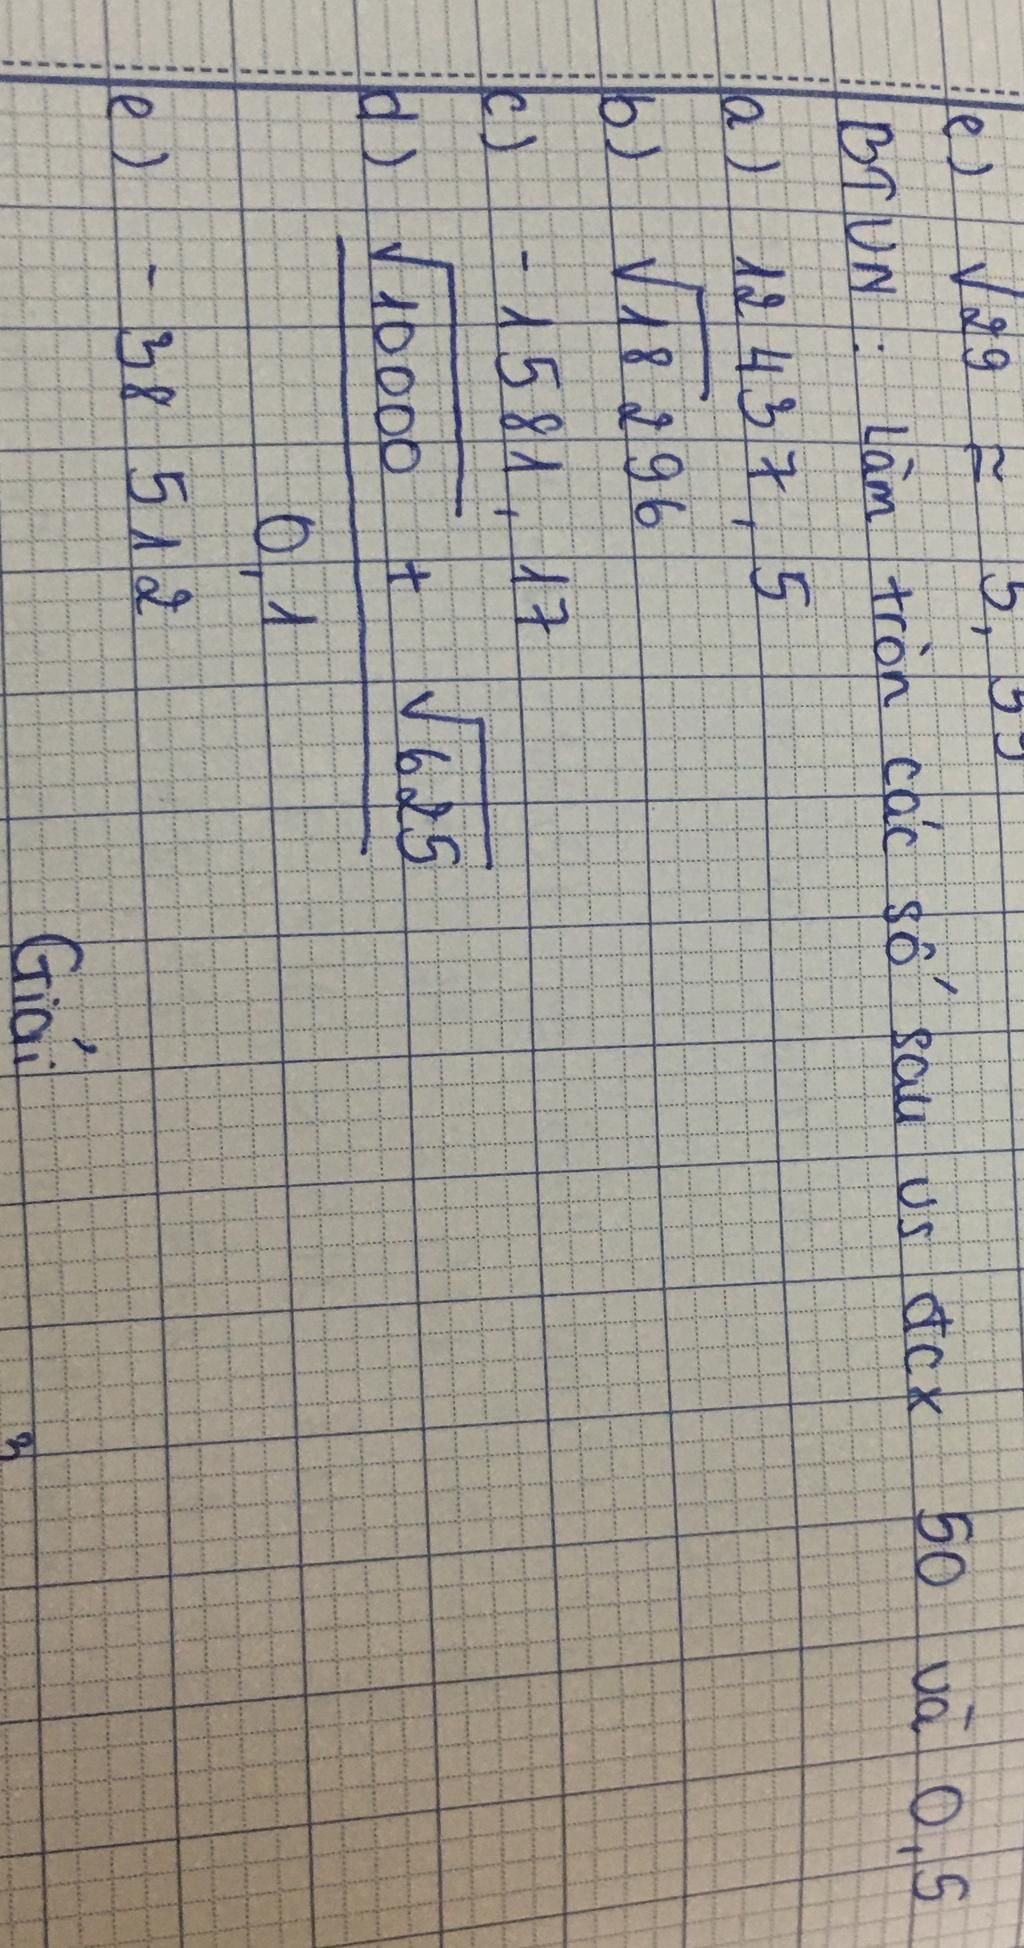 e) √29 ≈ 5,39
BTVN : Làm tròn các số sau vs đcx 50 và 0,5
a) 12 437,5
b) √18 296
c) - 1 581,17
d) √10000 + √625
0,1
e) - 38 512
Giải